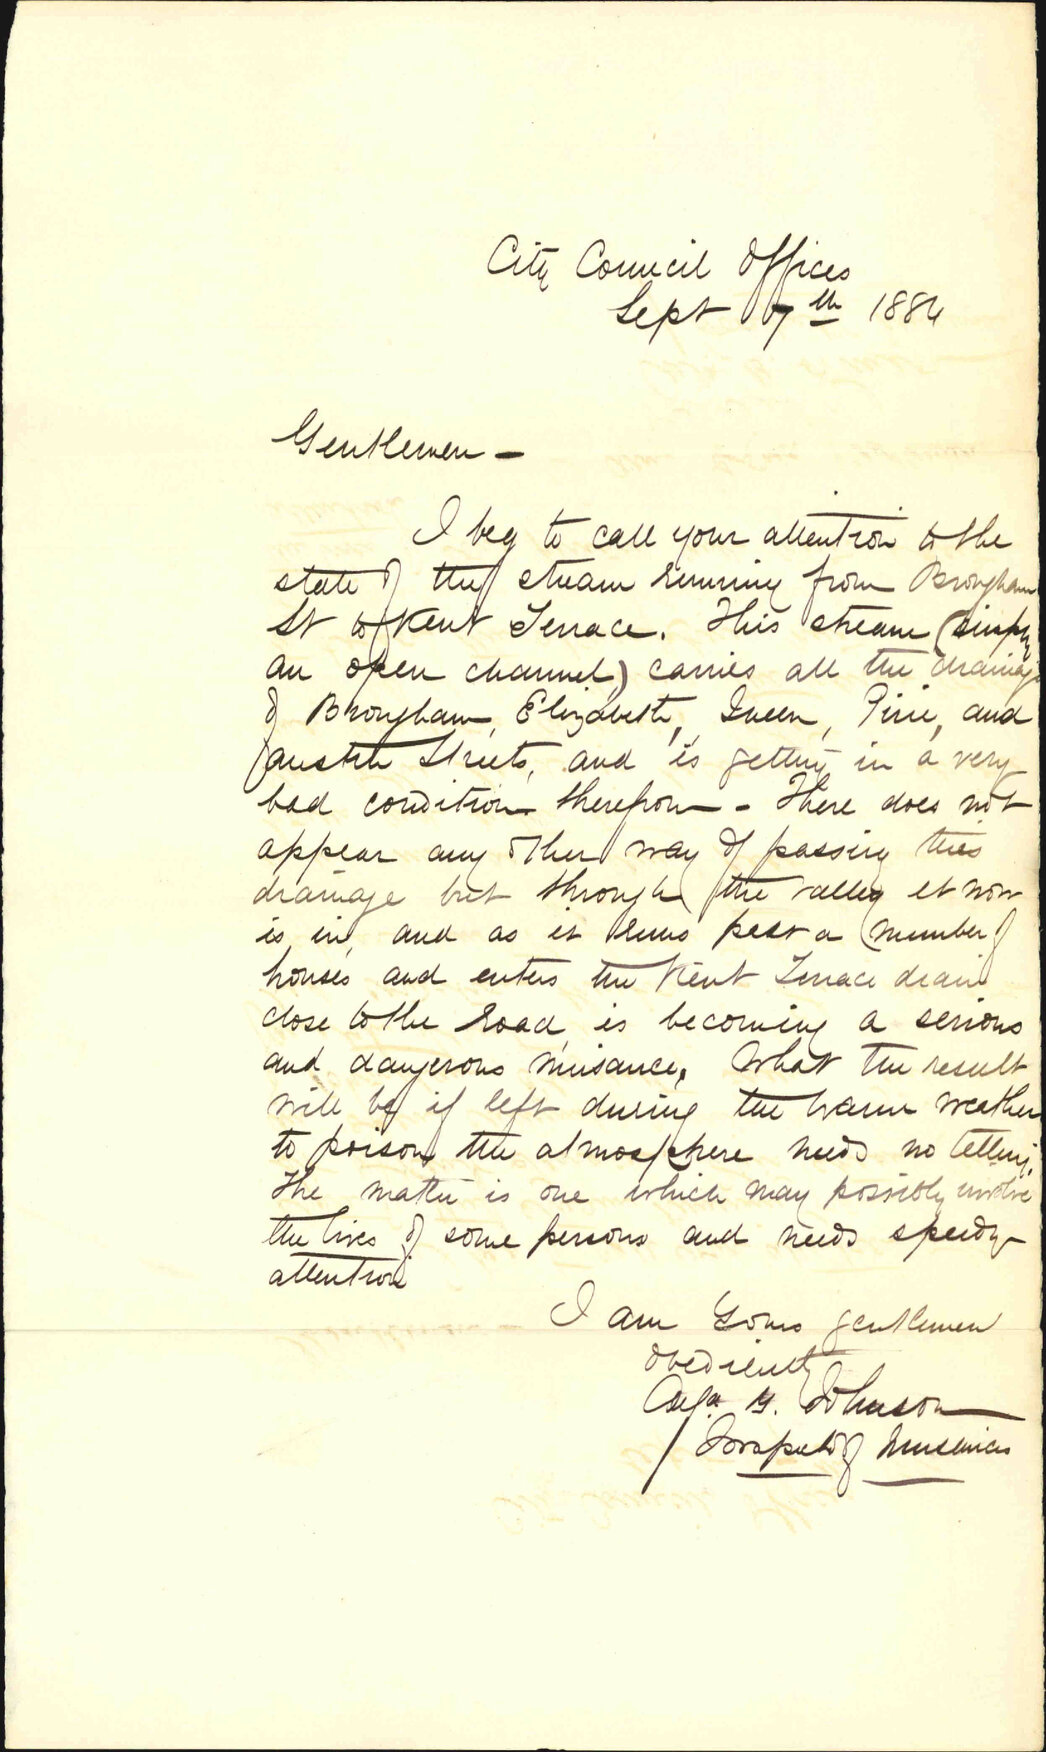 City Council Offices
Sept 7th 1884
Gentlemen -
I beg to call your attention to the
state of the stream running from Brougham
St to Kent Terrace. This stream (simply
an open channel) carries all the drainage
of Brougham, Elizabeth, Queen, Pirie, and
Austin Streets, and is getting in a very
bad condition therefrom - There does not
appear any other way of passing this
drainage but through the valley it now
is in, and as it runs past a number of
houses and enters the Kent Terrace drain
close to the road, is becoming a serious
and dangerous nuisance, What the result
will be if left during the warm weather
to poison the atmosphere needs no telling.
The matter is one which may possibly involve
the lives of some persons and needs speedy
attention
I am Yours gentlemen
obediently
Johnson
Inspector of Nuisances